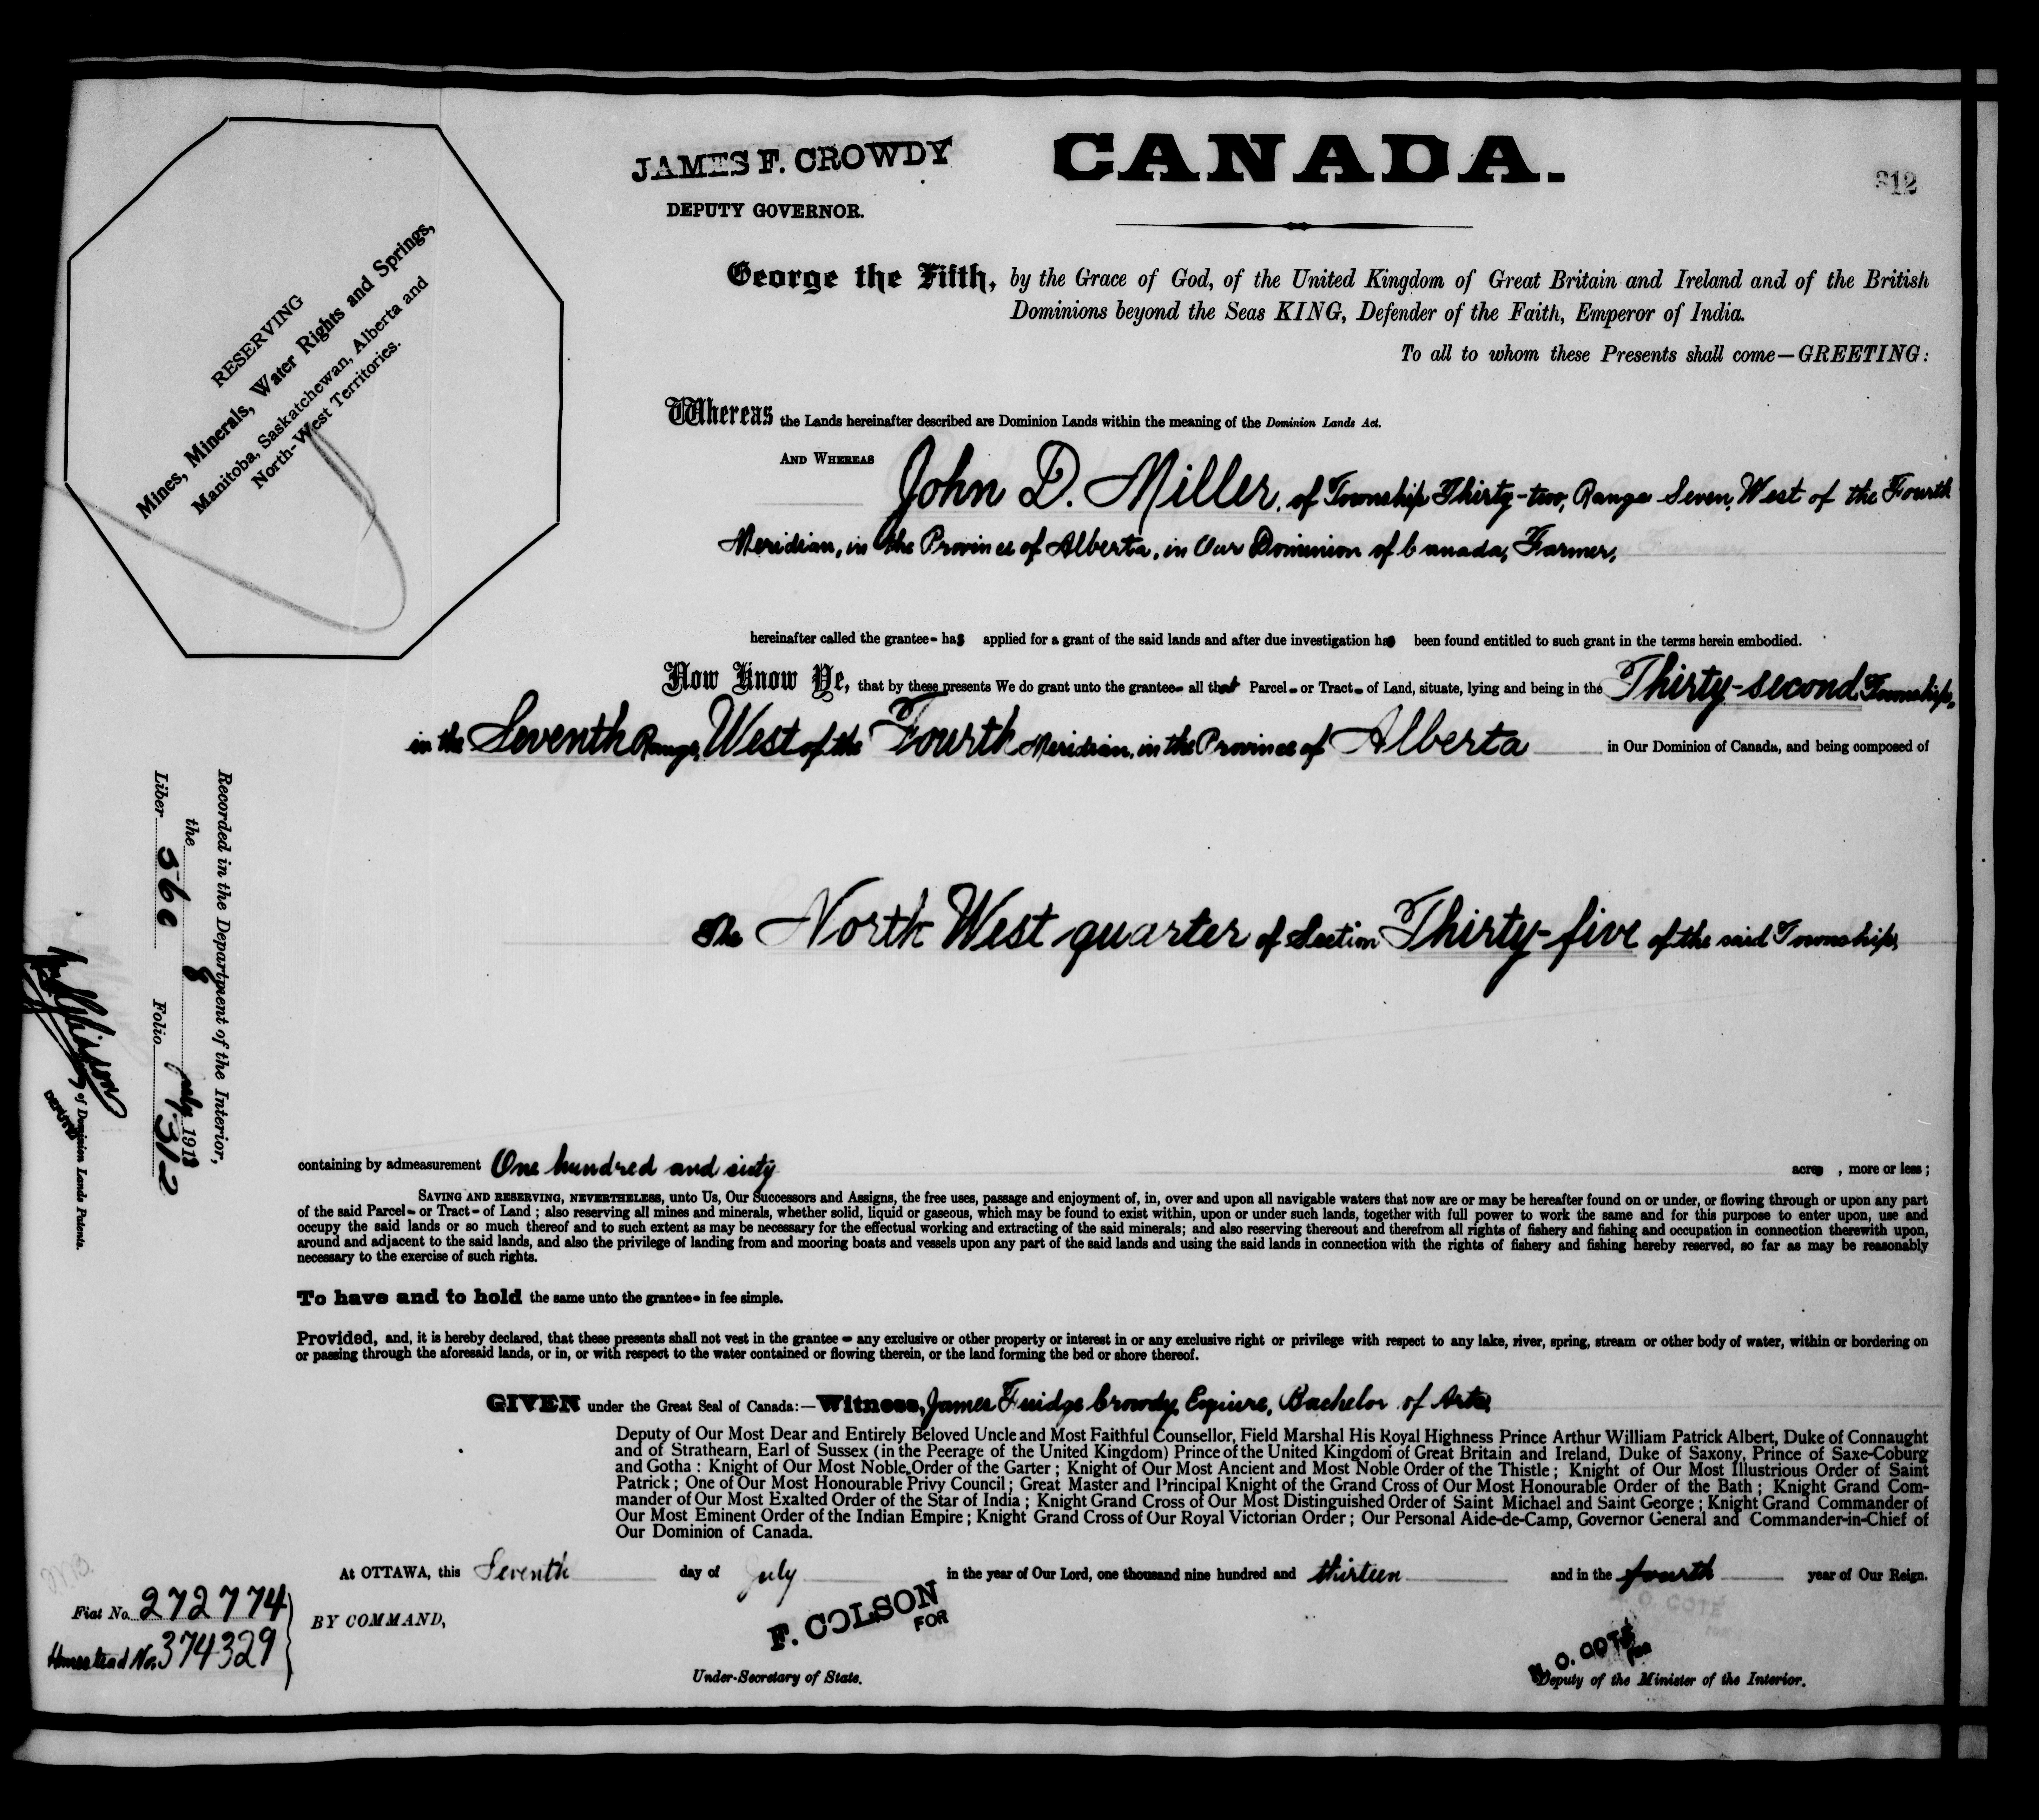 JAMES F. CROWDY
DEPUTY GOVERNOR.
CANADA.
312
RESERVING
Mines, Minerals, Water Rights and Springs,
Manitoba, Saskatchewan, Alberta and
North-West Territories.
George the Fifth, by the Grace of God, of the United Kingdom of Great Britain and Ireland and of the British
Dominions beyond the Seas KING, Defender of the Faith, Emperor of India.
To all to whom these Presents shall come—GREETING:
Whereas the Lands hereinafter described are Dominion Lands within the meaning of the Dominion Lands Act.
AND WHEREAS John D. Miller, of Township Thirty-two, Range Seven, West of the Fourth
Meridian, in the Province of Alberta, in Our Dominion of Canada, Farmer,
hereinafter called the grantee- has applied for a grant of the said lands and after due investigation has been found entitled to such grant in the terms herein embodied.
Now Know Ye, that by these presents We do grant unto the grantee- all that Parcel- or Tract- of Land, situate, lying and being in the Thirty-second Township,
in the Seventh Range, West of the Fourth Meridian, in the Province of Alberta in Our Dominion of Canada, and being composed of
The North West quarter of Section Thirty-five of the said Township,
Recorded in the Department of the Interior,
the 8 July 1913
Liber 360 Folio 312
DEPUTY of Dominion Lands Patents.
containing by admeasurement One hundred and sixty acres , more or less;
SAVING AND RESERVING, NEVERTHELESS, unto Us, Our Successors and Assigns, the free uses, passage and enjoyment of, in, over and upon all navigable waters that now are or may be hereafter found on or under, or flowing through or upon any part
of the said Parcel- or Tract- of Land; also reserving all mines and minerals, whether solid, liquid or gaseous, which may be found to exist within, upon or under such lands, together with full power to work the same and for this purpose to enter upon, use and
occupy the said lands or so much thereof and to such extent as may be necessary for the effectual working and extracting of the said minerals; and also reserving thereout and therefrom all rights of fishery and fishing and occupation in connection therewith upon,
around and adjacent to the said lands, and also the privilege of landing from and mooring boats and vessels upon any part of the said lands and using the said lands in connection with the rights of fishery and fishing hereby reserved, so far as may be reasonably
necessary to the exercise of such rights.
To have and to hold the same unto the grantee- in fee simple.
Provided, and, it is hereby declared, that these presents shall not vest in the grantee - any exclusive or other property or interest in or any exclusive right or privilege with respect to any lake, river, spring, stream or other body of water, within or bordering on
or passing through the aforesaid lands, or in, or with respect to the water contained or flowing therein, or the land forming the bed or shore thereof.
GIVEN under the Great Seal of Canada:—Witness, James Fuidge Crowdy, Esquire, Bachelor of Arts,
Deputy of Our Most Dear and Entirely Beloved Uncle and Most Faithful Counsellor, Field Marshal His Royal Highness Prince Arthur William Patrick Albert, Duke of Connaught
and of Strathearn, Earl of Sussex (in the Peerage of the United Kingdom) Prince of the United Kingdom of Great Britain and Ireland, Duke of Saxony, Prince of Saxe-Coburg
and Gotha: Knight of Our Most Noble Order of the Garter; Knight of Our Most Ancient and Most Noble Order of the Thistle; Knight of Our Most Illustrious Order of Saint
Patrick; One of Our Most Honourable Privy Council; Great Master and Principal Knight of the Grand Cross of Our Most Honourable Order of the Bath; Knight Grand Com-
mander of Our Most Exalted Order of the Star of India; Knight Grand Cross of Our Most Distinguished Order of Saint Michael and Saint George; Knight Grand Commander of
Our Most Eminent Order of the Indian Empire; Knight Grand Cross of Our Royal Victorian Order; Our Personal Aide-de-Camp, Governor General and Commander-in-Chief of
Our Dominion of Canada.
At OTTAWA, this Seventh day of July in the year of Our Lord, one thousand nine hundred and thirteen and in the fourth year of Our Reign.
Fiat No. 272774
Homestead No. 374329
BY COMMAND,
F. COLSON
FOR
Under-Secretary of State.
N. O. COTE
FOR
Deputy of the Minister of the Interior.